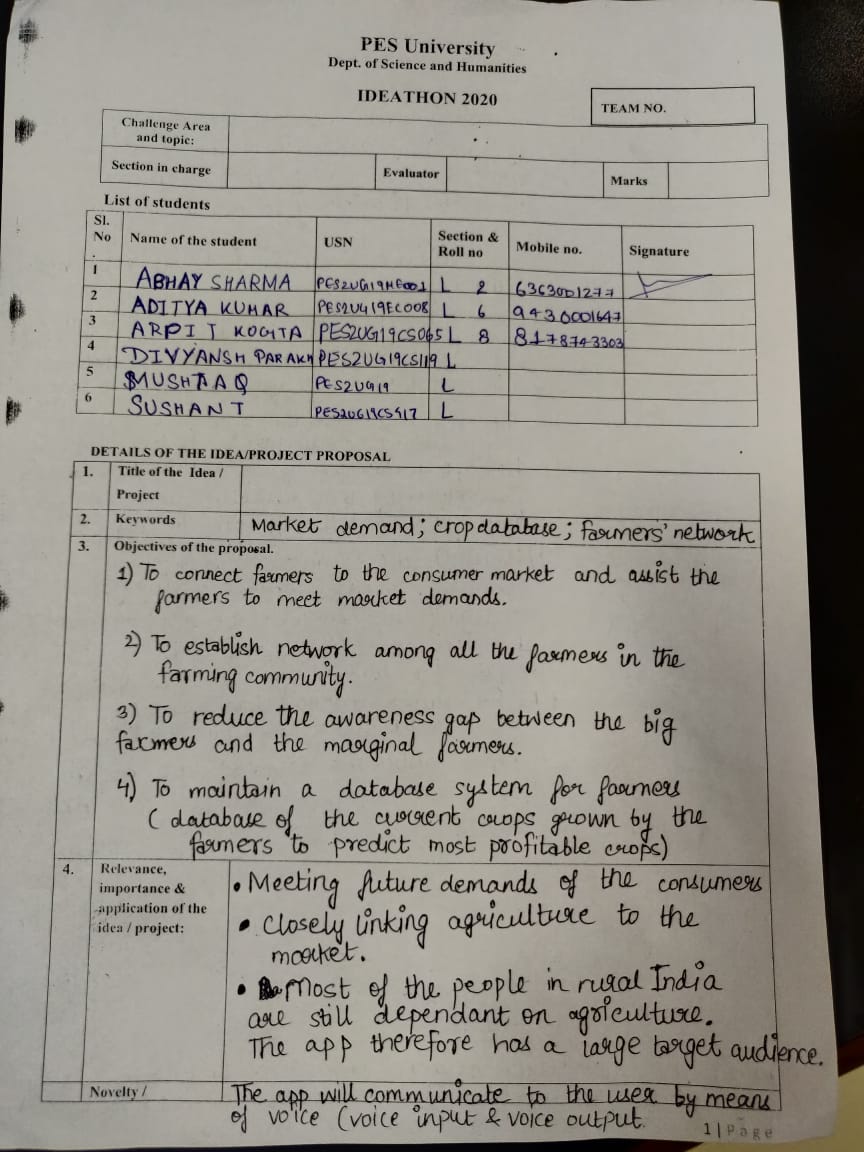 PES University
Dept. of Science and Humanities
IDEATHON 2020
TEAM NO.
Challenge Area and topic:
Section in charge Evaluator Marks
List of students
Sl. No . Name of the student USN Section & Roll no Mobile no. Signature
1 ABHAY SHARMA PES2UG19ME001 L 2 6363001277
2 ADITYA KUMAR PES2UG19EC008 L 6 9430001647
3 ARPIT KOGTA PES2UG19CS065 L 8 8178743303
4 DIVYANSH PARAKH PES2UG19CS119 L
5 MUSHTAQ PES2UG19 L
6 SUSHANT PES2UG19CS417 L
DETAILS OF THE IDEA/PROJECT PROPOSAL
1. Title of the Idea /
Project
2. Keywords Market demand; crop database; farmers' network
3. Objectives of the proposal.
1) To connect farmers to the consumer market and assist the
farmers to meet market demands.
2) To establish network among all the farmers in the
farming community.
3) To reduce the awareness gap between the big
farmers and the marginal farmers.
4) To maintain a database system for farmers
( database of the current crops grown by the
farmers to predict most profitable crops)
4. Relevance,
importance &
application of the
idea / project:
• Meeting future demands of the consumers
• Closely linking agriculture to the
market.
• Most of the people in rural India
are still dependant on agriculture.
The app therefore has a large target audience.
Novelty / The app will communicate to the user by means
of voice (voice input & voice output.
1 | Page